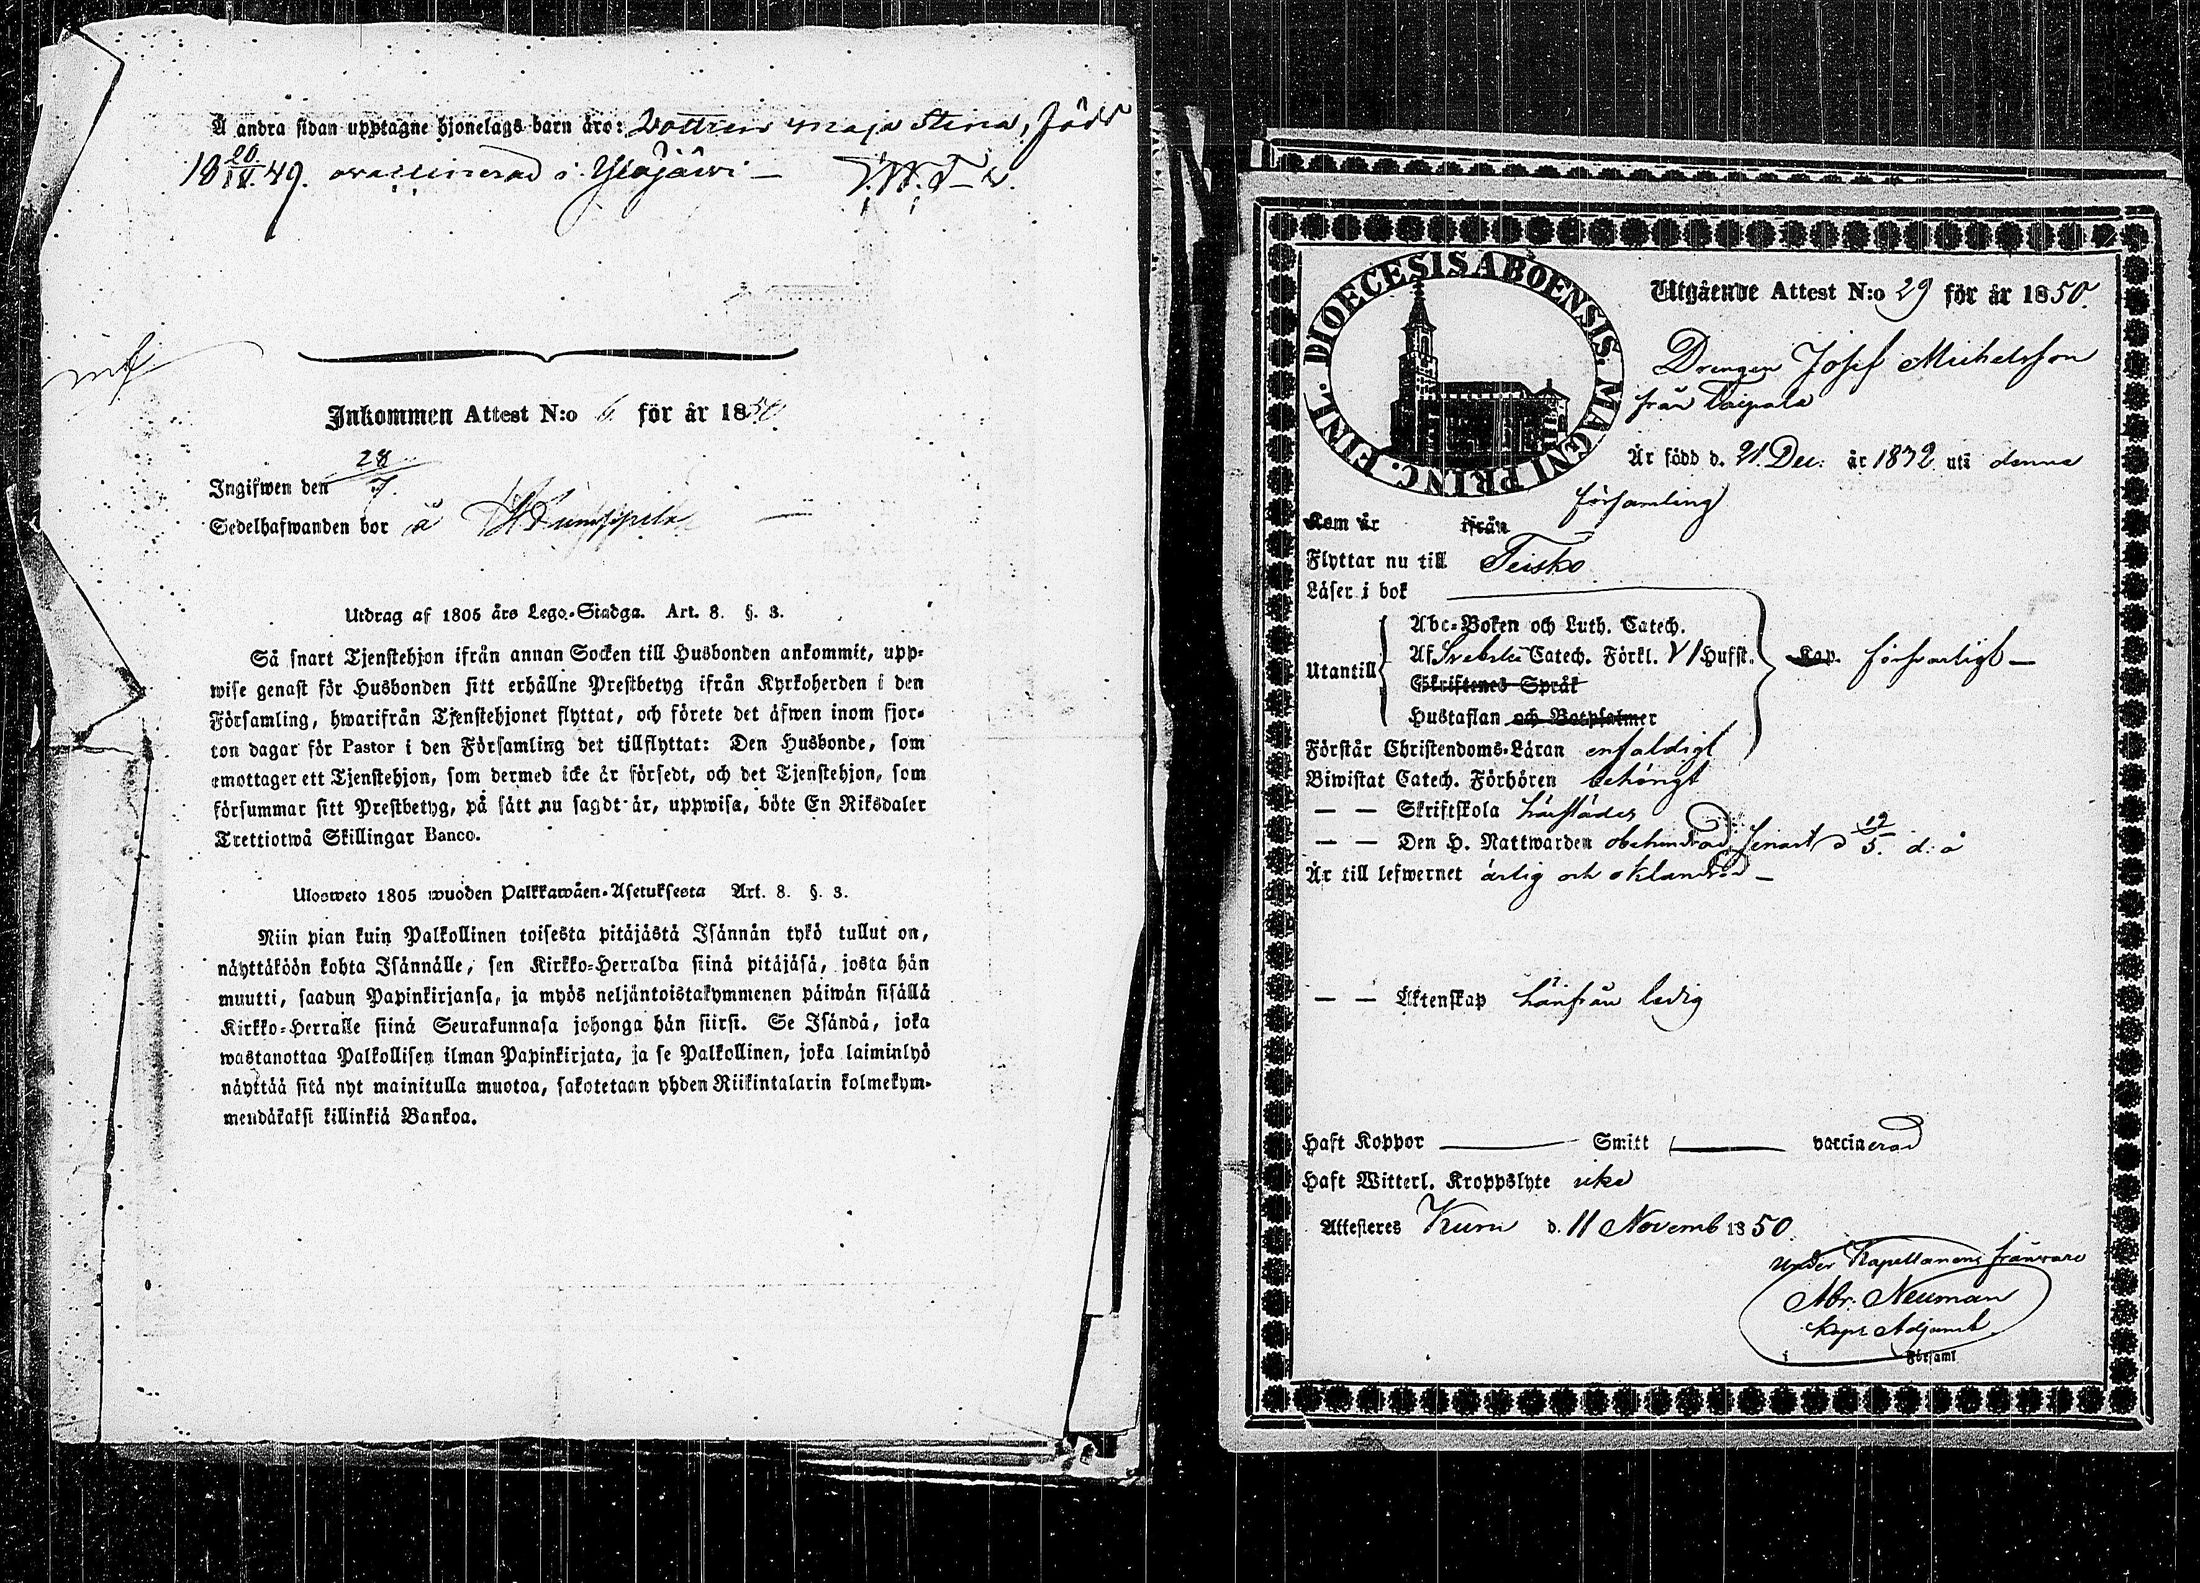 Å andra sidan upptagne hjonelags barn äro: Dottren Maja Stina, född
18 20/IV. 49. ovaccinerad i Ylöjärvi —
Inkommen Attest N:o 6. för år 1850.
Ingifwen den 28/7.
Sedelhafwanden bor å
Utdrag af 1805 års Lego-Stadga. Art. 8. §. 3.
Så snart Tjenstehjon ifrån annan Socken till Husbonden ankommit, upp-
wise genast för Husbonden sitt erhållne Prestbetyg ifrån Kyrkoherden i den
Församling, hwarifrån Tjenstehjonet flyttat, och förete det äfwen inom fjor-
ton dagar för Pastor i den Församling det tillflyttat: Den Husbonde, som
emottager ett Tjenstehjon, som dermed icke är försedt, och det Tjenstehjon, som
försummar sitt Prestbetyg, på sätt nu sagdt är, uppwisa, böte En Riksdaler
Trettiotwå Skillingar Banco.
Ulosweto 1805 wuoden Palkkawäen-Asetuksesta Art. 8. §. 3.
Niin pian kuin Palkollinen toisesta pitäjästä Isännän tykö tullut on,
näyttäköön kohta Isännälle, sen Kirkko-Herralda siinä pitäjäsä, josta hän
muutti, saadun Papinkirjansa, ja myös neljäntoistakymmenen päiwän sisällä
Kirkko-Herralle siinä Seurakunnasa johonga hän siirsi. Se Isändä, joka
wastanottaa Palkollisen ilman Papinkirjata, ja se Palkollinen, joka laiminlyö
näyttää sitä nyt mainitulla muotoa, sakotetaan yhden Riikintalarin kolmekym-
mendäkaksi killinkiä Bankoa.
DIOECESIS ABOENSIS. MAGNI PRINC. FINL.
Utgående Attest N:o 29 för år 1850.
Drengen Josef Michelsson
från Taipale
Är född d. 21. Dec. år 1832 uti denna
församling
Kom år ifrån
Flyttar nu till Teisko
Läser i bok
Utantill
Abc-Boken och Luth. Catech.
Af Svebelii Catech. Förkl. VI Hufst.
Skriftenes Språk
Hustaflan och Botpsalmer
Kap. försvarligt —
Förstår Christendoms-Läran enfaldigt
Biwistat Catech. Förhören behörigt
— — Skriftskola härstädes
— — Den H. Nattwarden obehindrad, senast d 12/5. d: å
Är till lefwernet ärlig och oklandrad —
— — Äktenskap härifrån ledig
Haft Koppor — Smitt — vaccinerad
Haft Witterl. Kroppslyte icke
Attesteres Kuru d. 11 Novemb 1850.
Under Kapellanens frånvaro
Abr. Neuman
Kapl Adjunct.
i Församl